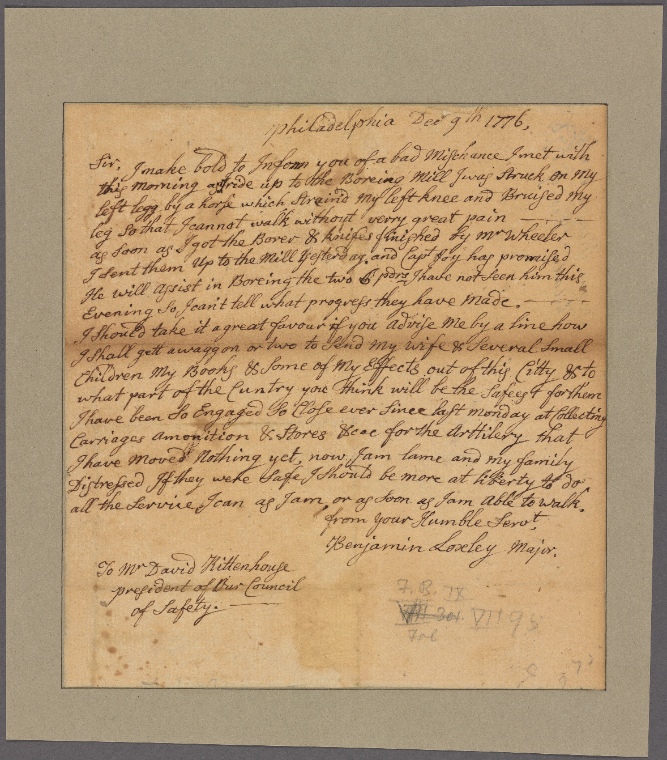 Philadelphia Decr 9th 1776,
Sir, I make bold to Inform you of a bad Mischance I met with
this Morning astride up to the Boreing Mill I was Struck on My
left legg by a horse which Straind My left knee and Bruised My
leg So that I cannot walk without verry great pain
as Soon as I got the Borer & knifes finished by Mr Wheeler
I sent them Up to the Mill Yesterday, and Capt Joy has promised
He will Assist in Boreing the two 6 pdrs I have not Seen him this
Evening So I can't tell what progress they have Made.
I Should take it a great favour if you Advise Me by a line how
I Shall gett a waggon or two to Send My wife & Several Small
Children My Books & Some of My Effects out of this Citty & to
what part of the Cuntry you think will be the Safest for them
I have been So Engaged So Close ever Since last Monday at Collecting
Carriages Amonition & Stores &cac for the Arttilery that
I have Moved Nothing yet, now I am lame and my family
Distressed, If they were Safe I should be more at liberty to do
all the Service I can as I am, or as Soon as I am Able to walk.
from Your Humble Servt.
Benjamin Loxley Major.
To Mr David Rittenhouse
president of Our Council
of Safety.
F.B. IX
VII 95